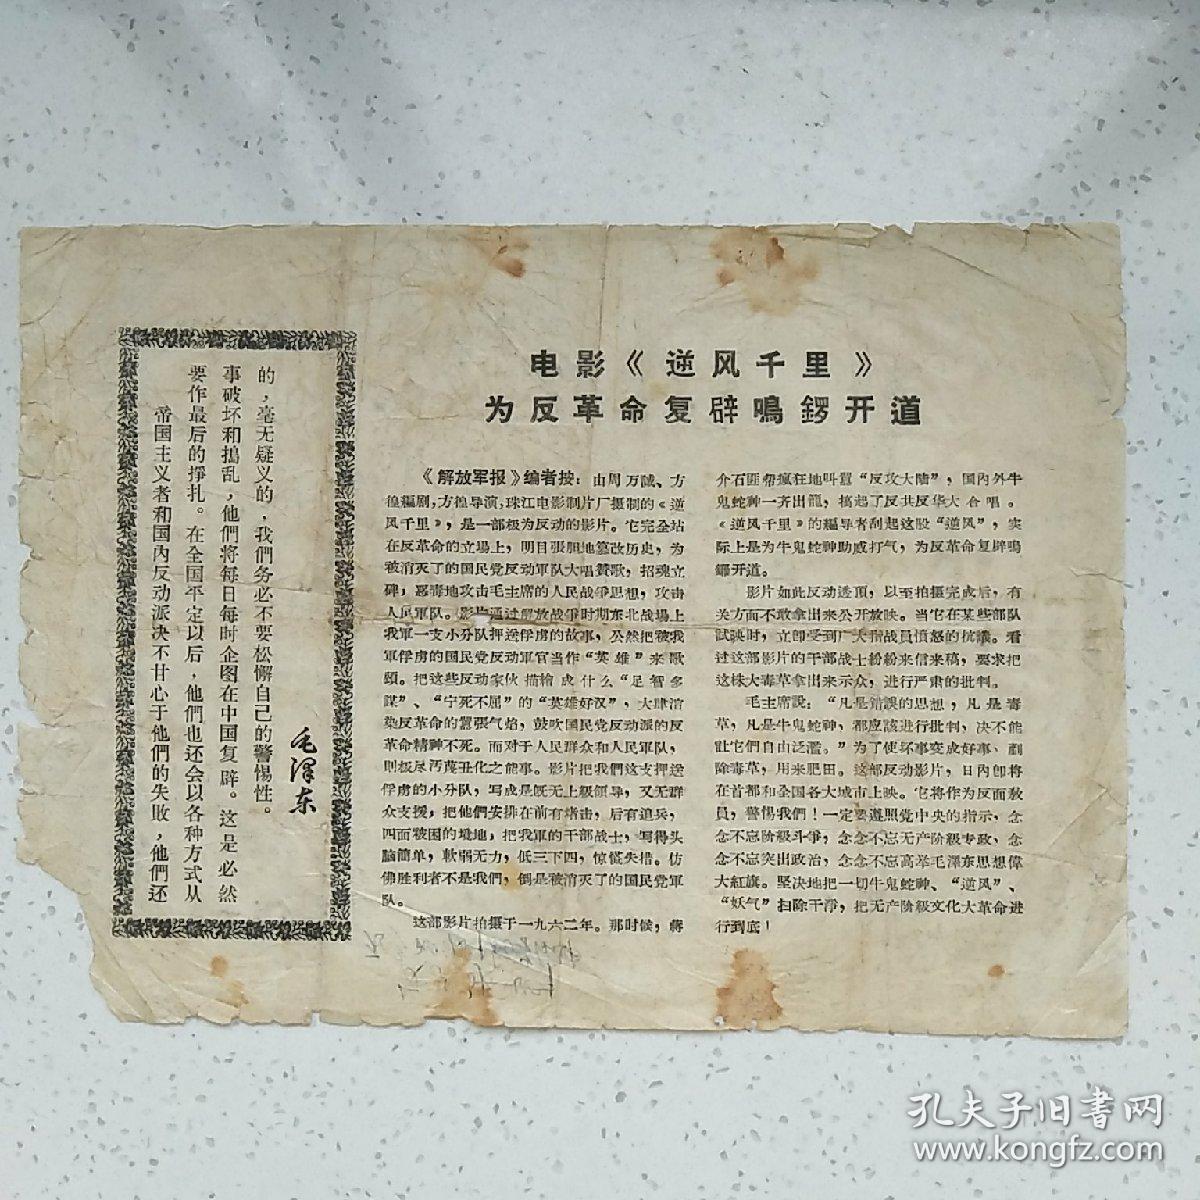 电影《逆风千里》
为反革命复辟鳴鑼开道
帝国主义者和国內反动派决不甘心于他們的失敗，他們还
要作最后的掙扎。在全国平定以后，他們也还会以各种方式从
事破坏和搗乱，他們将每日每时企图在中国复辟。这是必然
的，毫无疑义的，我們务必不要松懈自己的警惕性。
毛澤东
《解放军报》編者按：由周万誠、方
徨編剧，方徨导演，珠江电影制片厂摄制的《逆
风千里》，是一部极为反动的影片。它完全站
在反革命的立場上，明目張胆地篡改历史，为
被消灭了的国民党反动軍队大唱贊歌，招魂立
碑；恶毒地攻击毛主席的人民战爭思想，攻击
人民軍队。影片通过解放战爭时期东北战場上
我軍一支小分队押送俘虏的故事，公然把被我
軍俘虏的国民党反动軍官当作“英雄”来歌
頌。把这些反动家伙描繪成什么“足智多
謀”、“宁死不屈”的“英雄好汉”，大肆渲
染反革命的囂張气焰，鼓吹国民党反动派的反
革命精神不死。而对于人民群众和人民軍队，
則极尽污蔑丑化之能事。影片把我們这支押送
俘虏的小分队，写成是既无上級領导，又无群
众支援，把他們安排在前有堵击，后有追兵，
四面被困的境地；把我軍的干部战士，写得头
脑簡单，軟弱无力，低三下四，惊慌失措。仿
佛胜利者不是我們，倒是被消灭了的国民党軍
队。
这部影片拍摄于一九六二年。那时候，蔣
介石匪帮瘋狂地叫囂“反攻大陆”，国內外牛
鬼蛇神一齐出籠，搞起了反共反华大合唱。
《逆风千里》的編导者刮起这股“逆风”，实
际上是为牛鬼蛇神助威打气，为反革命复辟鳴
鑼开道。
影片如此反动透頂，以至拍摄完成后，有
关方面不敢拿出来公开放映。当它在某些部队
試映时，立即受到广大指战員憤怒的抗議。看
过这部影片的干部战士紛紛来信来稿，要求把
这株大毒草拿出来示众，进行严肃的批判。
毛主席說：“凡是錯誤的思想，凡是毒
草，凡是牛鬼蛇神，都应該进行批判，决不能
让它們自由泛濫。”为了使坏事变成好事，剷
除毒草，用来肥田。这部反动影片，日內即将
在首都和全国各大城市上映。它将作为反面教
員，警惕我們！一定要遵照党中央的指示，念
念不忘阶級斗爭，念念不忘无产阶級专政，念
念不忘突出政治，念念不忘高举毛澤东思想偉
大紅旗。坚决地把一切牛鬼蛇神、“逆风”、
“妖气”扫除干淨，把无产阶級文化大革命进
行到底！
孔夫子旧书网
www.kongfz.com